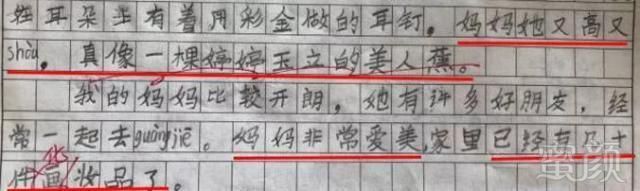 娃耳朵上有着用彩金做的耳钉。妈妈她又高又
shòu，真像一棵婷婷玉立的美人蕉。
我的妈妈比较开朗，她有许多好朋友，经
常一起去guàngjiē。妈妈非常爱美，家里已经有几十
件画妆品了。
化
蜜颜